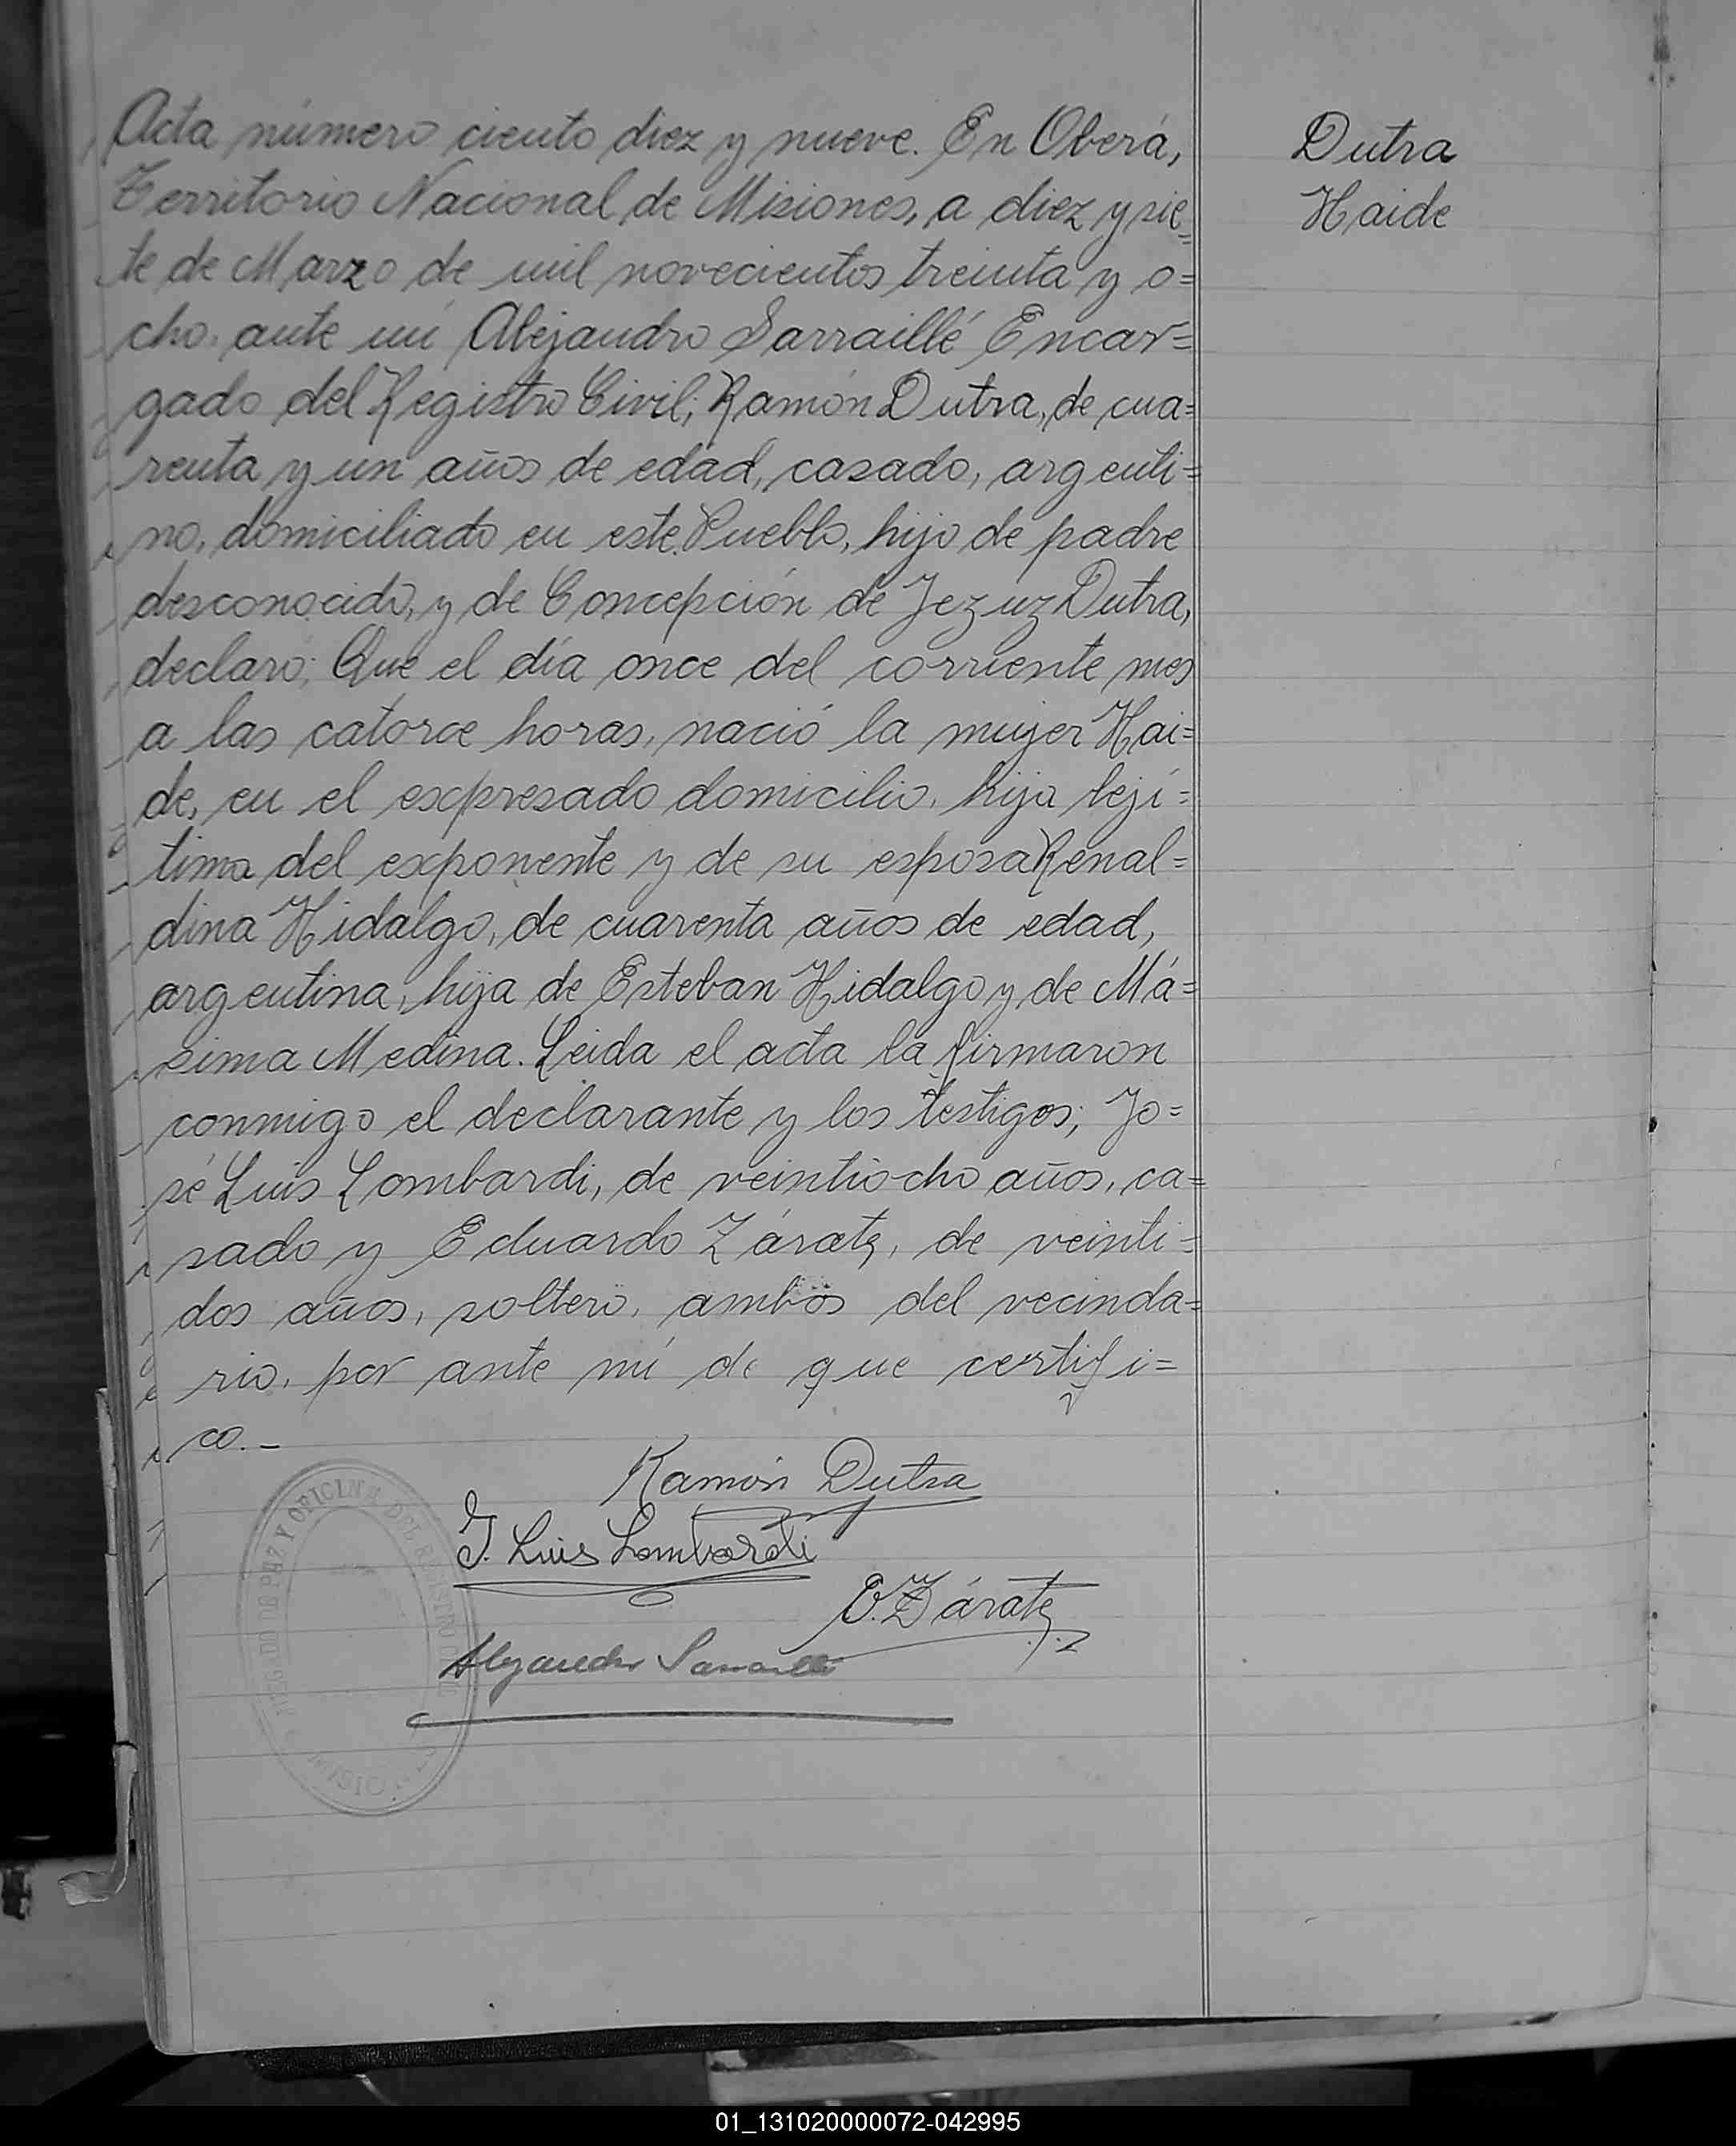 Acta número ciento diez y nueve. En Oberá,
Territorio Nacional de Misiones, a diez y sie=
te de Marzo de mil novecientos treinta y o=
cho, ante mí Alejandro Sarraillé Encar=
gado del Registro Civil; Ramón Dutra, de cua=
renta y un años de edad, casado, argenti=
no, domiciliado en este Pueblo, hijo de padre
desconocido, y de Concepción de Jezuz Dutra,
declaro; Que el día once del corriente mes
a las catorce horas, nació la mujer Hai=
de, en el expresado domicilio, hija lejí=
tima del exponente y de su esposa Renal=
dina Hidalgo, de cuarenta años de edad,
argentina, hija de Esteban Hidalgo y de Má=
sima Medina. Leida el acta la firmaron
conmigo el declarante y los testigos; Jo=
sé Luis Lombardi, de veintiocho años, ca=
sado y Eduardo Zárate, de veinti=
dos años, soltero, ambos del vecinda=
rio, por ante mí de que certifi=
co.–
Dutra
Haide
Ramón Dutra
J. Luis Lombardi
E. Zárate
Alejandro Sarraillé
JUZGADO DE PAZ Y OFICINA DEL REGISTRO CIVIL
01_131020000072-042995